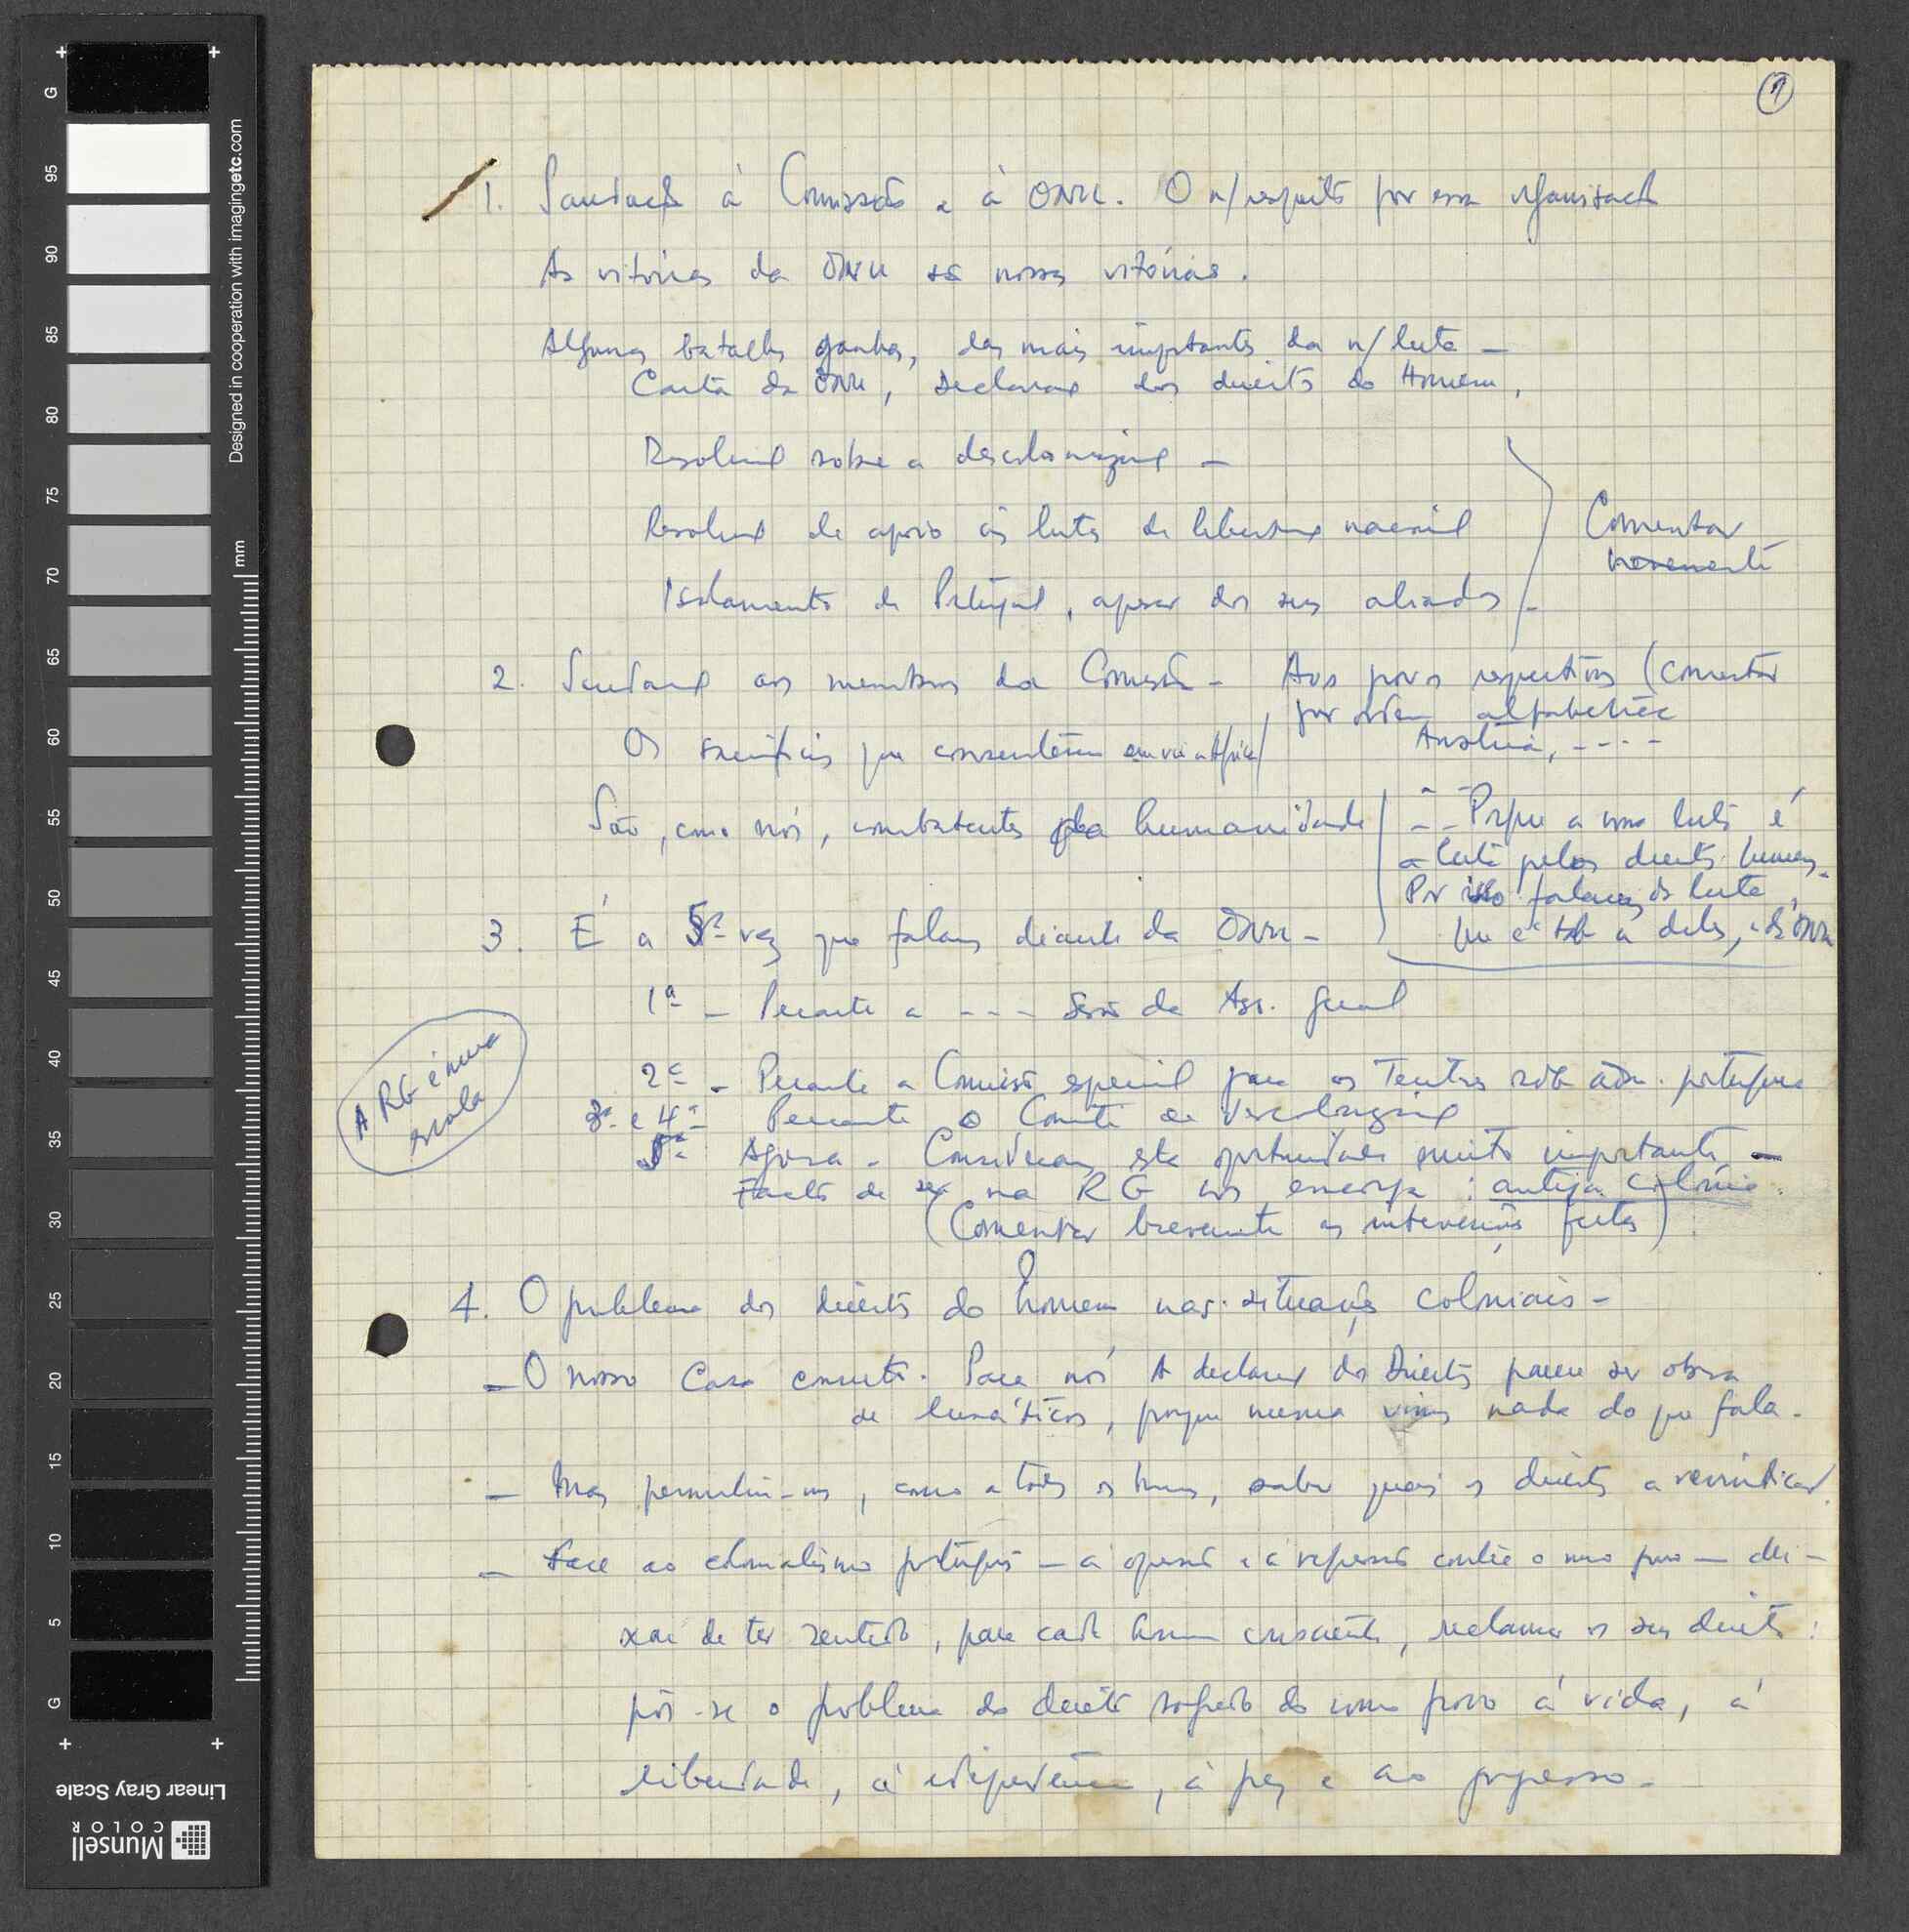 1
1. Saudação à Comissão e à ONU. O n/respeito por essa organização
As vitórias da ONU são nossas vitórias.
Algumas batalhas ganhas, das mais importantes da n/luta —
Carta da ONU, Declaração dos direitos do Homem,
Resolução sobre a descolonização —
Resolução de apoio às lutas de libertação nacional
Isolamento de Portugal, apesar dos seus aliados —
Comentar
brevemente
2. Saudação aos membros da Comissão — Aos povos respectivos (comentar
por ordem alfabética
Áustria, - - - -
Os sacrifícios que consentiram em vir a África
São, como nós, combatentes pela humanidade
- - Porque a nossa luta é
a luta pelos direitos humanos.
Por isso falamos da luta,
que é tb a deles, e da ONU
3. É a 5ª vez que falamos diante da ONU —
1ª — Perante a - - - Sessão da Ass. Geral
2ª — Perante a Comissão especial para os Territórios sob adm. portuguesa
3ª e 4ª Perante o Comité de Descolonização
5ª Agora — Consideramos esta oportunidade muito importante —
Facto de ser na RG nos encoraja : antiga colónia.
(Comentar brevemente as intervenções feitas)
A RG é uma
escola
4. O problema dos direitos do homem nas situações coloniais —
— O nosso caso concreto. Para nós A declaração dos Direitos parece ser obra
de lunáticos, porque nunca vimos nada do que fala.
— Mas permitiu-nos, como a todos os homens, saber quais os direitos a reivindicar.
— Face ao colonialismo português — à opressão e à repressão contra o nosso povo — dei-
xou de ter sentido, para cada homem consciente, reclamar os seus direitos:
pôs-se o problema do direito sagrado do nosso povo à vida, à
liberdade, à independência, à paz e ao progresso.
Designed in cooperation with imagingetc.com
mm
G
95
90
85
80
75
70
65
60
55
50
45
40
35
30
25
20
15
10
5
G
Linear Gray Scale
Munsell
COLOR